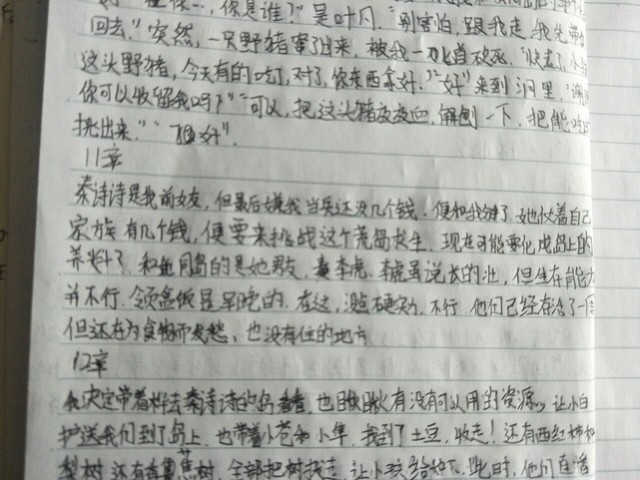 你是谁?"是叶凡,"别害怕,跟我走,我先带你
回去。"突然,一只野猪窜了出来,被我一刀砍死,"快走了,
这头野猪,今天有的吃了,对了,你东西拿好。""好"来到洞里,"
你可以收留我吗?""可以,把这头猪放放血,解刨一下,把能吃
挑出来。""好"。
11章
秦诗诗是我前女友,但最后嫌我当兵还没几个钱.便和我分了.她仗着自己
家族有几个钱,便要来挑战这个荒岛求生.现在可能要化成岛上的
养料了.和她同岛的是她男友,李虎.李虎虽说长的壮,但生存能力
并不行.领盒饭是早晚的.在这,不行.他们已经存活了一
但还在为食物而发愁,也没有住的地方
12章
我决定带着去秦诗诗的岛,也瞅瞅有没有可以用的资源。让小白
护送我们到了岛上.也带着小苍和小隼.找到了土豆,收走!还有西红柿和
梨树.还有香蕉树.全部把树挖走.让小.此时,他们